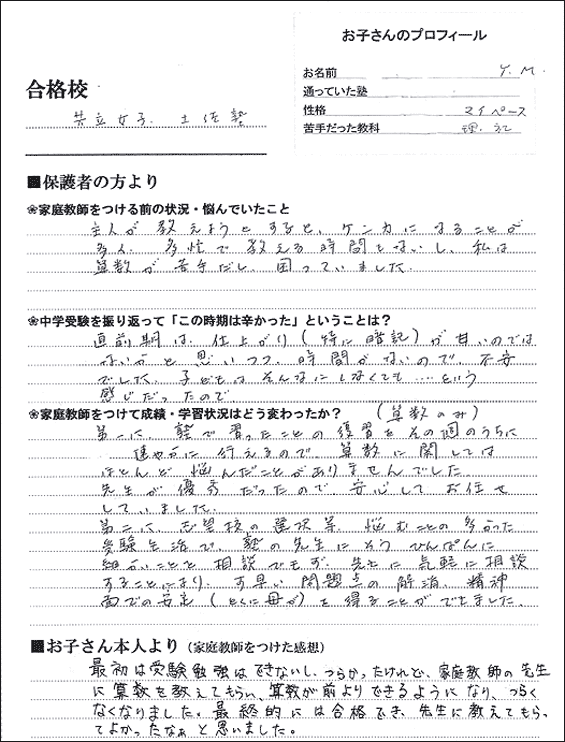 お子さんのプロフィール
お名前 Y.M.
通っていた塾
性格 マイペース
苦手だった教科 理・社
合格校
共立女子. 土佐塾
■保護者の方より
❀家庭教師をつける前の状況・悩んでいたこと
主人が教えようとすると、ケンカになることが
多く、多忙で教える時間もないし、私は
算数が苦手だし、困っていました.
❀中学受験を振り返って「この時期は辛かった」ということは?
直前期は、仕上がり(特に暗記)が甘いのでは
ないかと思いつつ、時間がないので、不安
でした. 子どもはそんなにしなくても....という
感じだったので
❀家庭教師をつけて成績・学習状況はどう変わったか? (算数のみ)
第一に、塾で習ったことの復習をその週のうちに
速やかに行えるので、算数に関しては
ほとんど悩んだことがありませんでした
先生が優秀だったので安心してお任せ
していました.
第二に、志望校の選択等、悩むことの多かった
受験生活で、塾の先生にそうひんぱんに
細かいことを相談できず、先生に気軽に相談
することにより、す早い問題点の解消、精神
面での安定(とくに母が)を得ることができました.
■お子さん本人より(家庭教師をつけた感想)
最初は受験勉強はできないし、つらかったけれど、家庭教師の先生
に算数を教えてもらい、算数が前よりできるようになり、つらく
なくなりました。最終的には合格でき、先生に教えてもらっ
てよかったなぁと思いました。